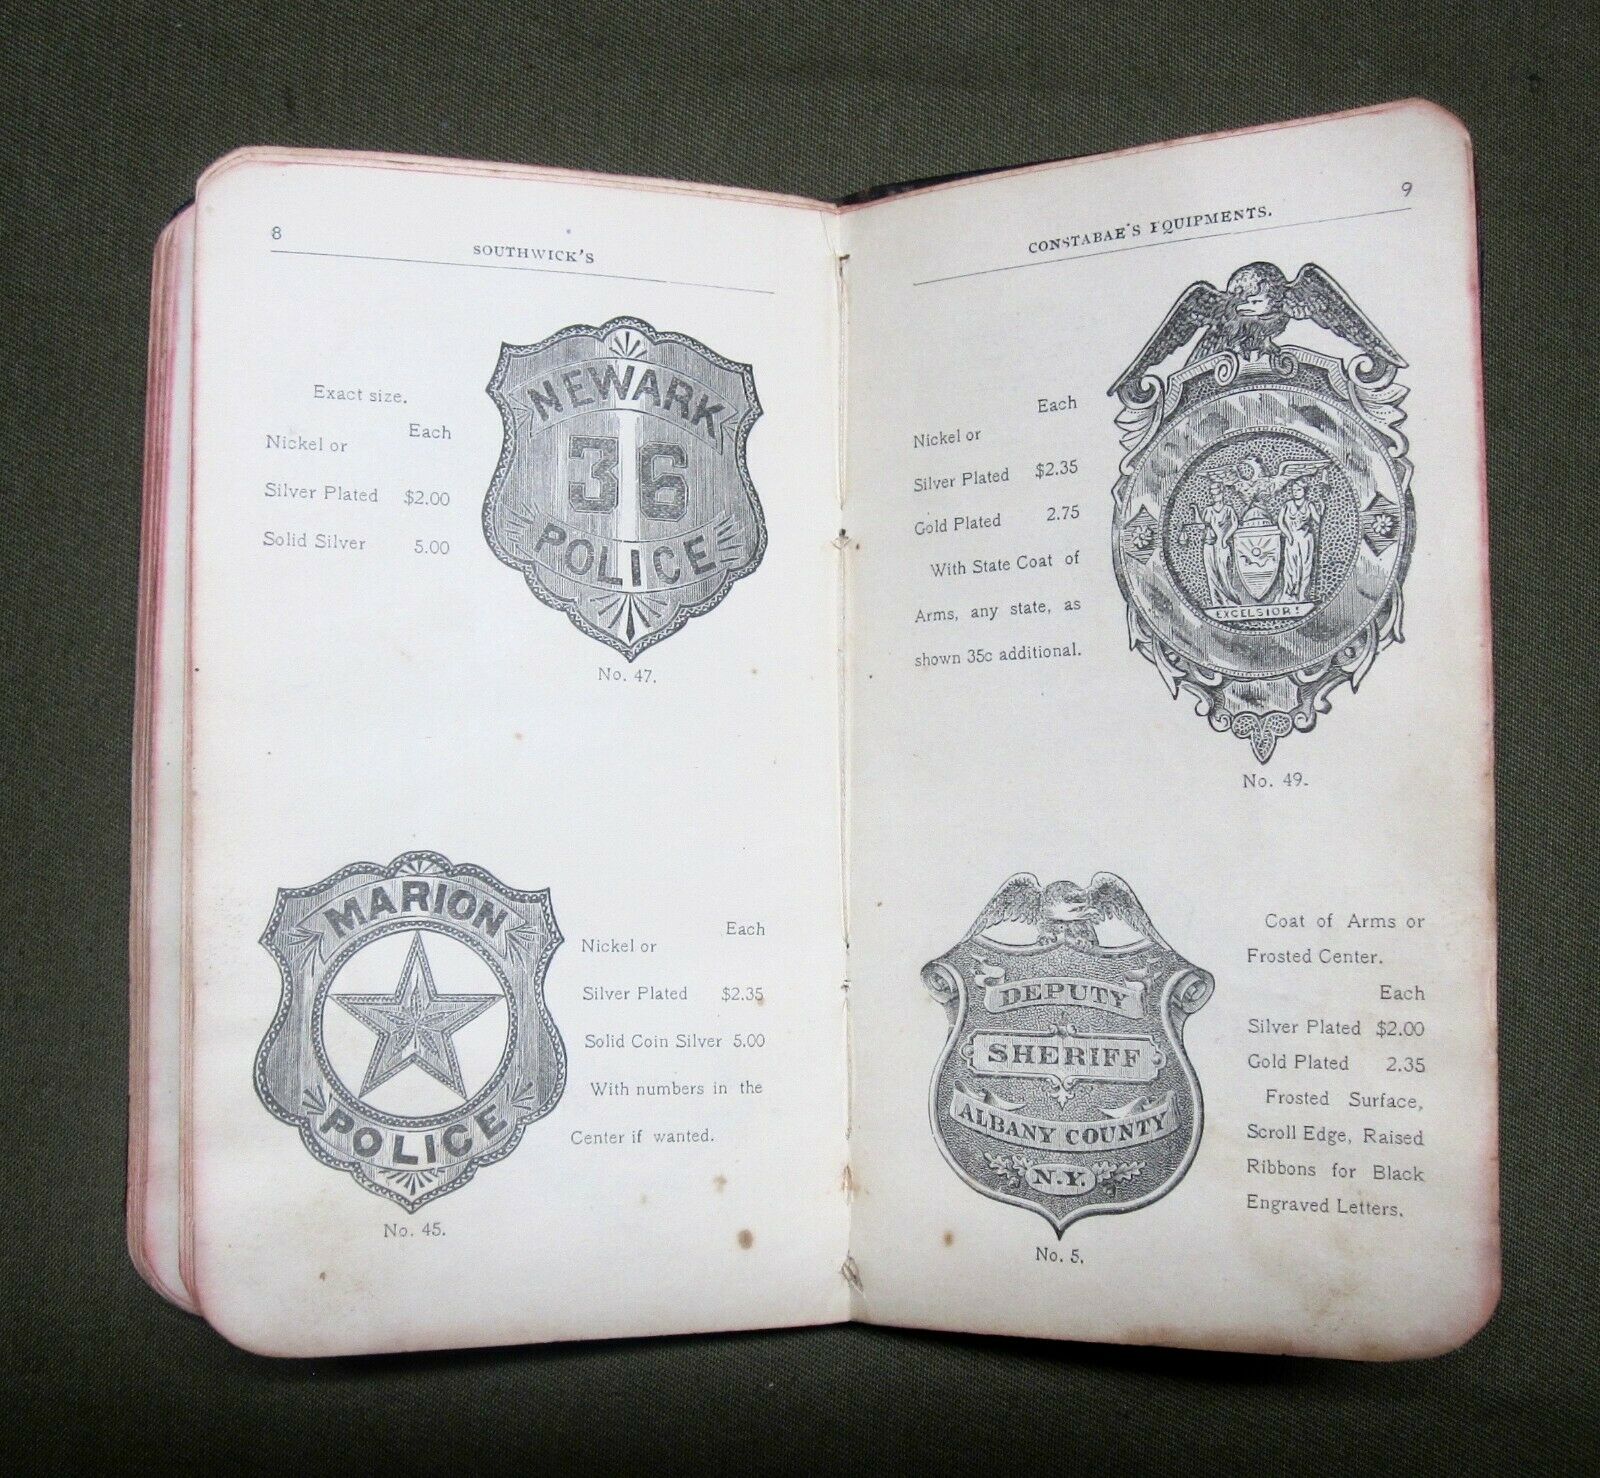 8
SOUTHWICK'S
Exact size.
Each
Nickel or
Silver Plated $2.00
Solid Silver 5.00
NEWARK
36
POLICE
No. 47.
MARION
POLICE
No. 45.
Each
Nickel or
Silver Plated $2.35
Solid Coin Silver 5.00
With numbers in the
Center if wanted.
9
CONSTABAE'S EQUIPMENTS.
Each
Nickel or
Silver Plated $2.35
Gold Plated 2.75
With State Coat of
Arms, any state, as
shown 35c additional.
EXCELSIOR!
No. 49.
DEPUTY
SHERIFF
ALBANY COUNTY
N.Y.
No. 5.
Coat of Arms or
Frosted Center.
Each
Silver Plated $2.00
Gold Plated 2.35
Frosted Surface,
Scroll Edge, Raised
Ribbons for Black
Engraved Letters.